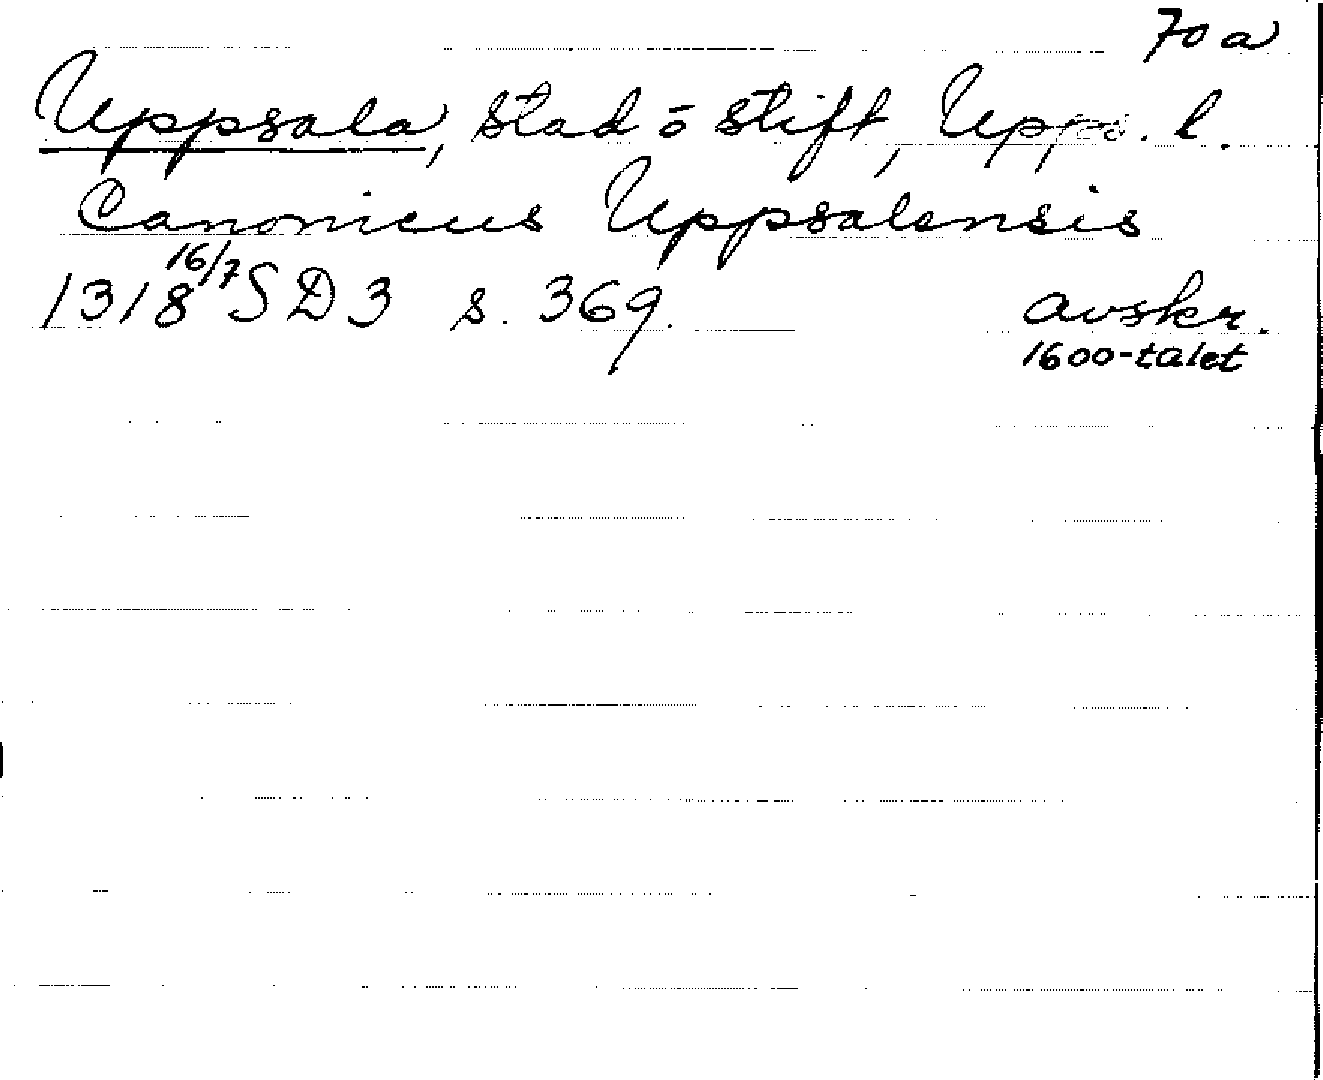 70 a
Uppsala, stad o stift, Upps. l.
Canonicus Uppsalensis
1318 16/7 SD 3 s. 369. avskr.
1600-talet